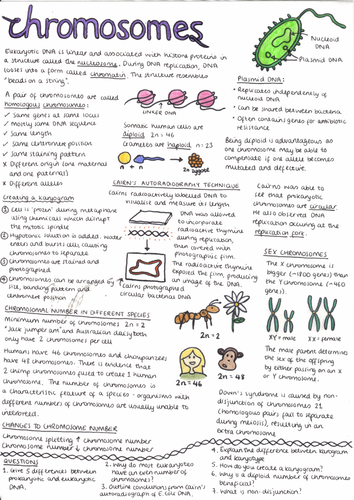 chromosomes
Nucleoid
DNA
Plasmid DNA
Eukaryotic DNA is linear and associated with histone proteins in
a structure called the nucleosome. During DNA replication, DNA
loosens into a form called chromatin. The structure resembles
"beads on a string".
LINKER DNA
Plasmid DNA:
• Replicates independently of
nucleoid DNA
• Can be shared between bacteria
• Often contains genes for antibiotic
resistance
A pair of chromosomes are called
homologous chromosomes:
✓ Same genes at same locus
✓ Mostly same DNA sequence
✓ Same length
✓ Same centromere position
✓ Same staining pattern
x Different origin (one maternal
and one paternal)
x Different alleles
Somatic human cells are
diploid 2n = 46
Gametes are haploid n = 23
n + n → 2n zygote
Being diploid is advantageous as
one chromosome may be able to
compensate if one allele becomes
mutated and defective.
Creating a karyogram
1 Cell is 'frozen' during metaphase
using chemicals which disrupt
the mitotic spindle
2 Hypotonic solution is added. Water
enters and bursts cells causing
chromosomes to separate
3 Chromosomes are stained and
photographed
4 Chromosomes can be arranged by
size, banding pattern and
centromere position
CAIRN'S AUTORADIOGRAPHY TECHNIQUE
Cairns radioactively labelled DNA to
visualise and measure its length.
DNA was allowed
to incorporate
radioactive thymine
during replication,
then covered with
photographic film.
The radioactive thymine
exposed the film, producing
an image of the DNA.
↑ cairns photographed
circular bacterial DNA
Cairns was able
to see that prokaryotic
chromosomes are circular.
He also observed DNA
replication occuring at the
replication fork.
SEX CHROMOSOMES
The X chromosome is
bigger (~1700 genes) than the
Y chromosome (~460
genes).
XY = male
XX = female
The male parent determines
the sex of the offspring
by either passing on an X
or Y chromosome.
CHROMOSOMAL NUMBER IN DIFFERENT SPECIES
Minimum number of chromosomes 2n = 2
'Jack jumper ant' and Australian daisy both
only have 2 chromosomes per cell
Humans have 46 chromosomes and chimpanzees
have 48 chromosomes. There is evidence that
2 chimp chromosomes fused to create 1 human
chromosome. The number of chromosomes is
a characteristic feature of a species - organisms with
different numbers of chromosomes are usually unable to
interbreed.
2n = 2
2n = 46
2n = 48
Down's syndrome is caused by non-
disjunction of chromosomes 21
(homologous pairs fail to separate
during meiosis), resulting in an
extra chromosome
CHANGES TO CHROMOSOME NUMBER
Chromosome splitting ↑ chromosome number
Chromosome fusing ↓ chromosome number
QUESTIONS
1. Give 3 differences between
prokaryotic and eukaryotic
DNA.
2. Why do most eukaryotes
have an even number of
chromosomes?
3. Outline conclusions from Cairn's
autoradiograph of E. coli DNA.
4. Explain the difference between karyogram
and karyotype
5. How do you create a karyogram?
6. Why is a diploid number of chromosomes
beneficial?
7. What is non-disjunction?